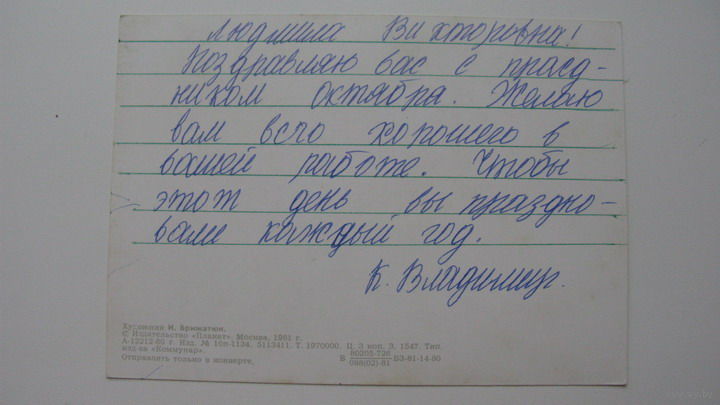 Людмила Викторовна!
Поздравляю вас с празд-
ником октября. Желаю
вам всго хорошего в
вашей работе. Чтобы
этот день вы праздно-
вали каждый год.
К. Владимир.
Художник И. Брюкатюк.
© Издательство «Плакат». Москва, 1981 г.
А-12212-80 г. Изд. № 10п-1134. 5113411. Т. 1970000. Ц. 3 коп. З. 1547. Тип.
изд-ва «Коммунар».
Отправлять только в конверте.
В 80205-726
088(02)-81 БЗ-81-14-80